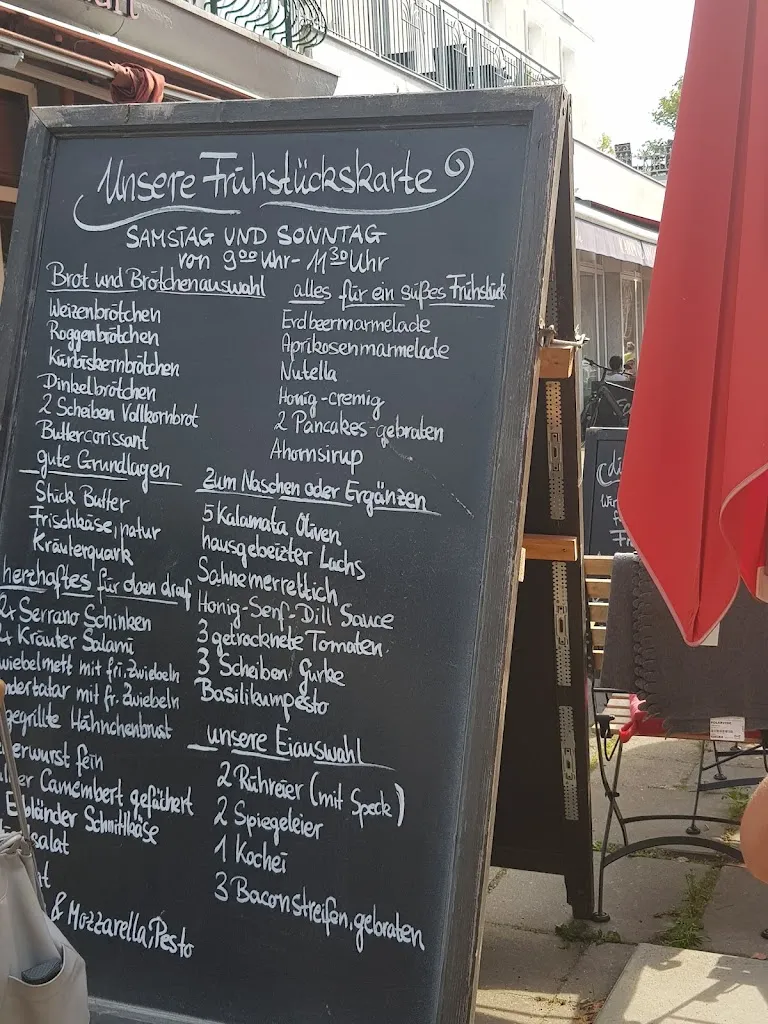 Unsere Frühstückskarte
SAMSTAG UND SONNTAG
von 9⁰⁰ Uhr - 11³⁰ Uhr
Brot und Brötchenauswahl
Weizenbrötchen
Roggenbrötchen
Kürbiskernbrötchen
Dinkelbrötchen
2 Scheiben Vollkornbrot
Buttercorissant
gute Grundlagen
Stück Butter
Frischkäse, natur
Kräuterquark
herzhaftes für oben drauf
Serrano Schinken
Kräuter Salami
mit fri. Zwiebeln
mit fr. Zwiebeln
gegrillte Hähnchenbrust
fein
Camembert gefächert
Schnittkäse
& Mozzarella, Pesto
alles für ein süßes Frühstück
Erdbeermarmelade
Aprikosenmarmelade
Nutella
Honig - cremig
2 Pancakes - gebraten
Ahornsirup
Zum Naschen oder Ergänzen
5 Kalamata Oliven
hausgebeizter Lachs
Sahnemerrettich
Honig-Senf-Dill Sauce
3 getrocknete Tomaten
3 Scheiben Gurke
Basilikumpesto
unsere Eiauswahl
2 Rühreier (mit Speck)
2 Spiegeleier
1 Kochei
3 Baconstreifen, gebraten